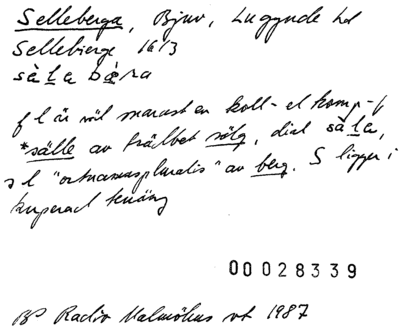 Selleberga, Bjuv, Luggude hd
Sellebierge 1613
sàḻa bæ̀ra
f l är väl snarast en koll- el komp-f
*sälle av trädbet sälg, dial sàḻa,
s l "ortnamnspluralis" av berg. S ligger i
kuperad terräng
00028339
BP Radio Malmöhus vt 1987